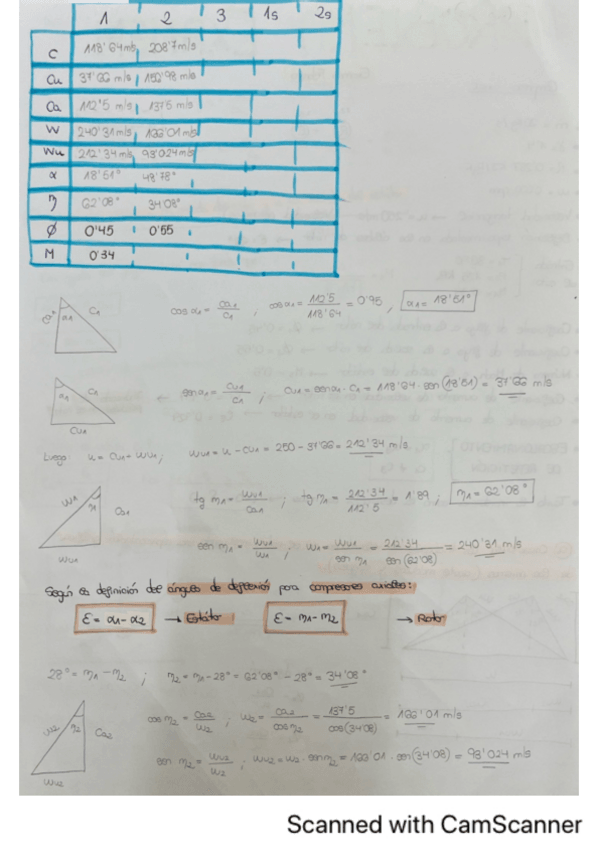 1 2 3 1s 2s
C 118'64 m/s 208'7 m/s
Cu 37'66 m/s 156'98 m/s
Ca 112'5 m/s 137'5 m/s
W 240'31 m/s 166'01 m/s
Wu 212'34 m/s 93'024 m/s
α 18'51° 48'78°
η 62'08° 34'08°
ϕ 0'45 0'55
M 0'34
Ca1 α1 C1
cos α1 = Ca1/C1 ; cos α1 = 112'5/118'64 = 0'95 , α1 = 18'51°
α1 C1 Cu1
sen α1 = Cu1/C1 ; Cu1 = sen α1 · C1 = 118'64 · sen(18'51) = 37'66 m/s
Luego: u = Cu1 + Wu1 ; Wu1 = u - Cu1 = 250 - 37'66 = 212'34 m/s
W1 η1 Ca1 Wu1
tg η1 = Wu1/Ca1 ; tg η1 = 212'34/112'5 = 1'89 ; η1 = 62'08°
sen η1 = Wu1/W1 ; W1 = Wu1/sen η1 = 212'34/sen(62'08) = 240'31 m/s
Según la definición del ángulo de deflexión para compresores axiales:
ε = α1 - α2 → Estátor ε = η1 - η2 → Rotor
28° = η1 - η2 ; η2 = η1 - 28° = 62'08° - 28° = 34'08°
W2 η2 Ca2 Wu2
cos η2 = Ca2/W2 ; W2 = Ca2/cos η2 = 137'5/cos(34'08) = 166'01 m/s
sen η2 = Wu2/W2 ; Wu2 = W2 · sen η2 = 166'01 · sen(34'08) = 93'024 m/s
Scanned with CamScanner